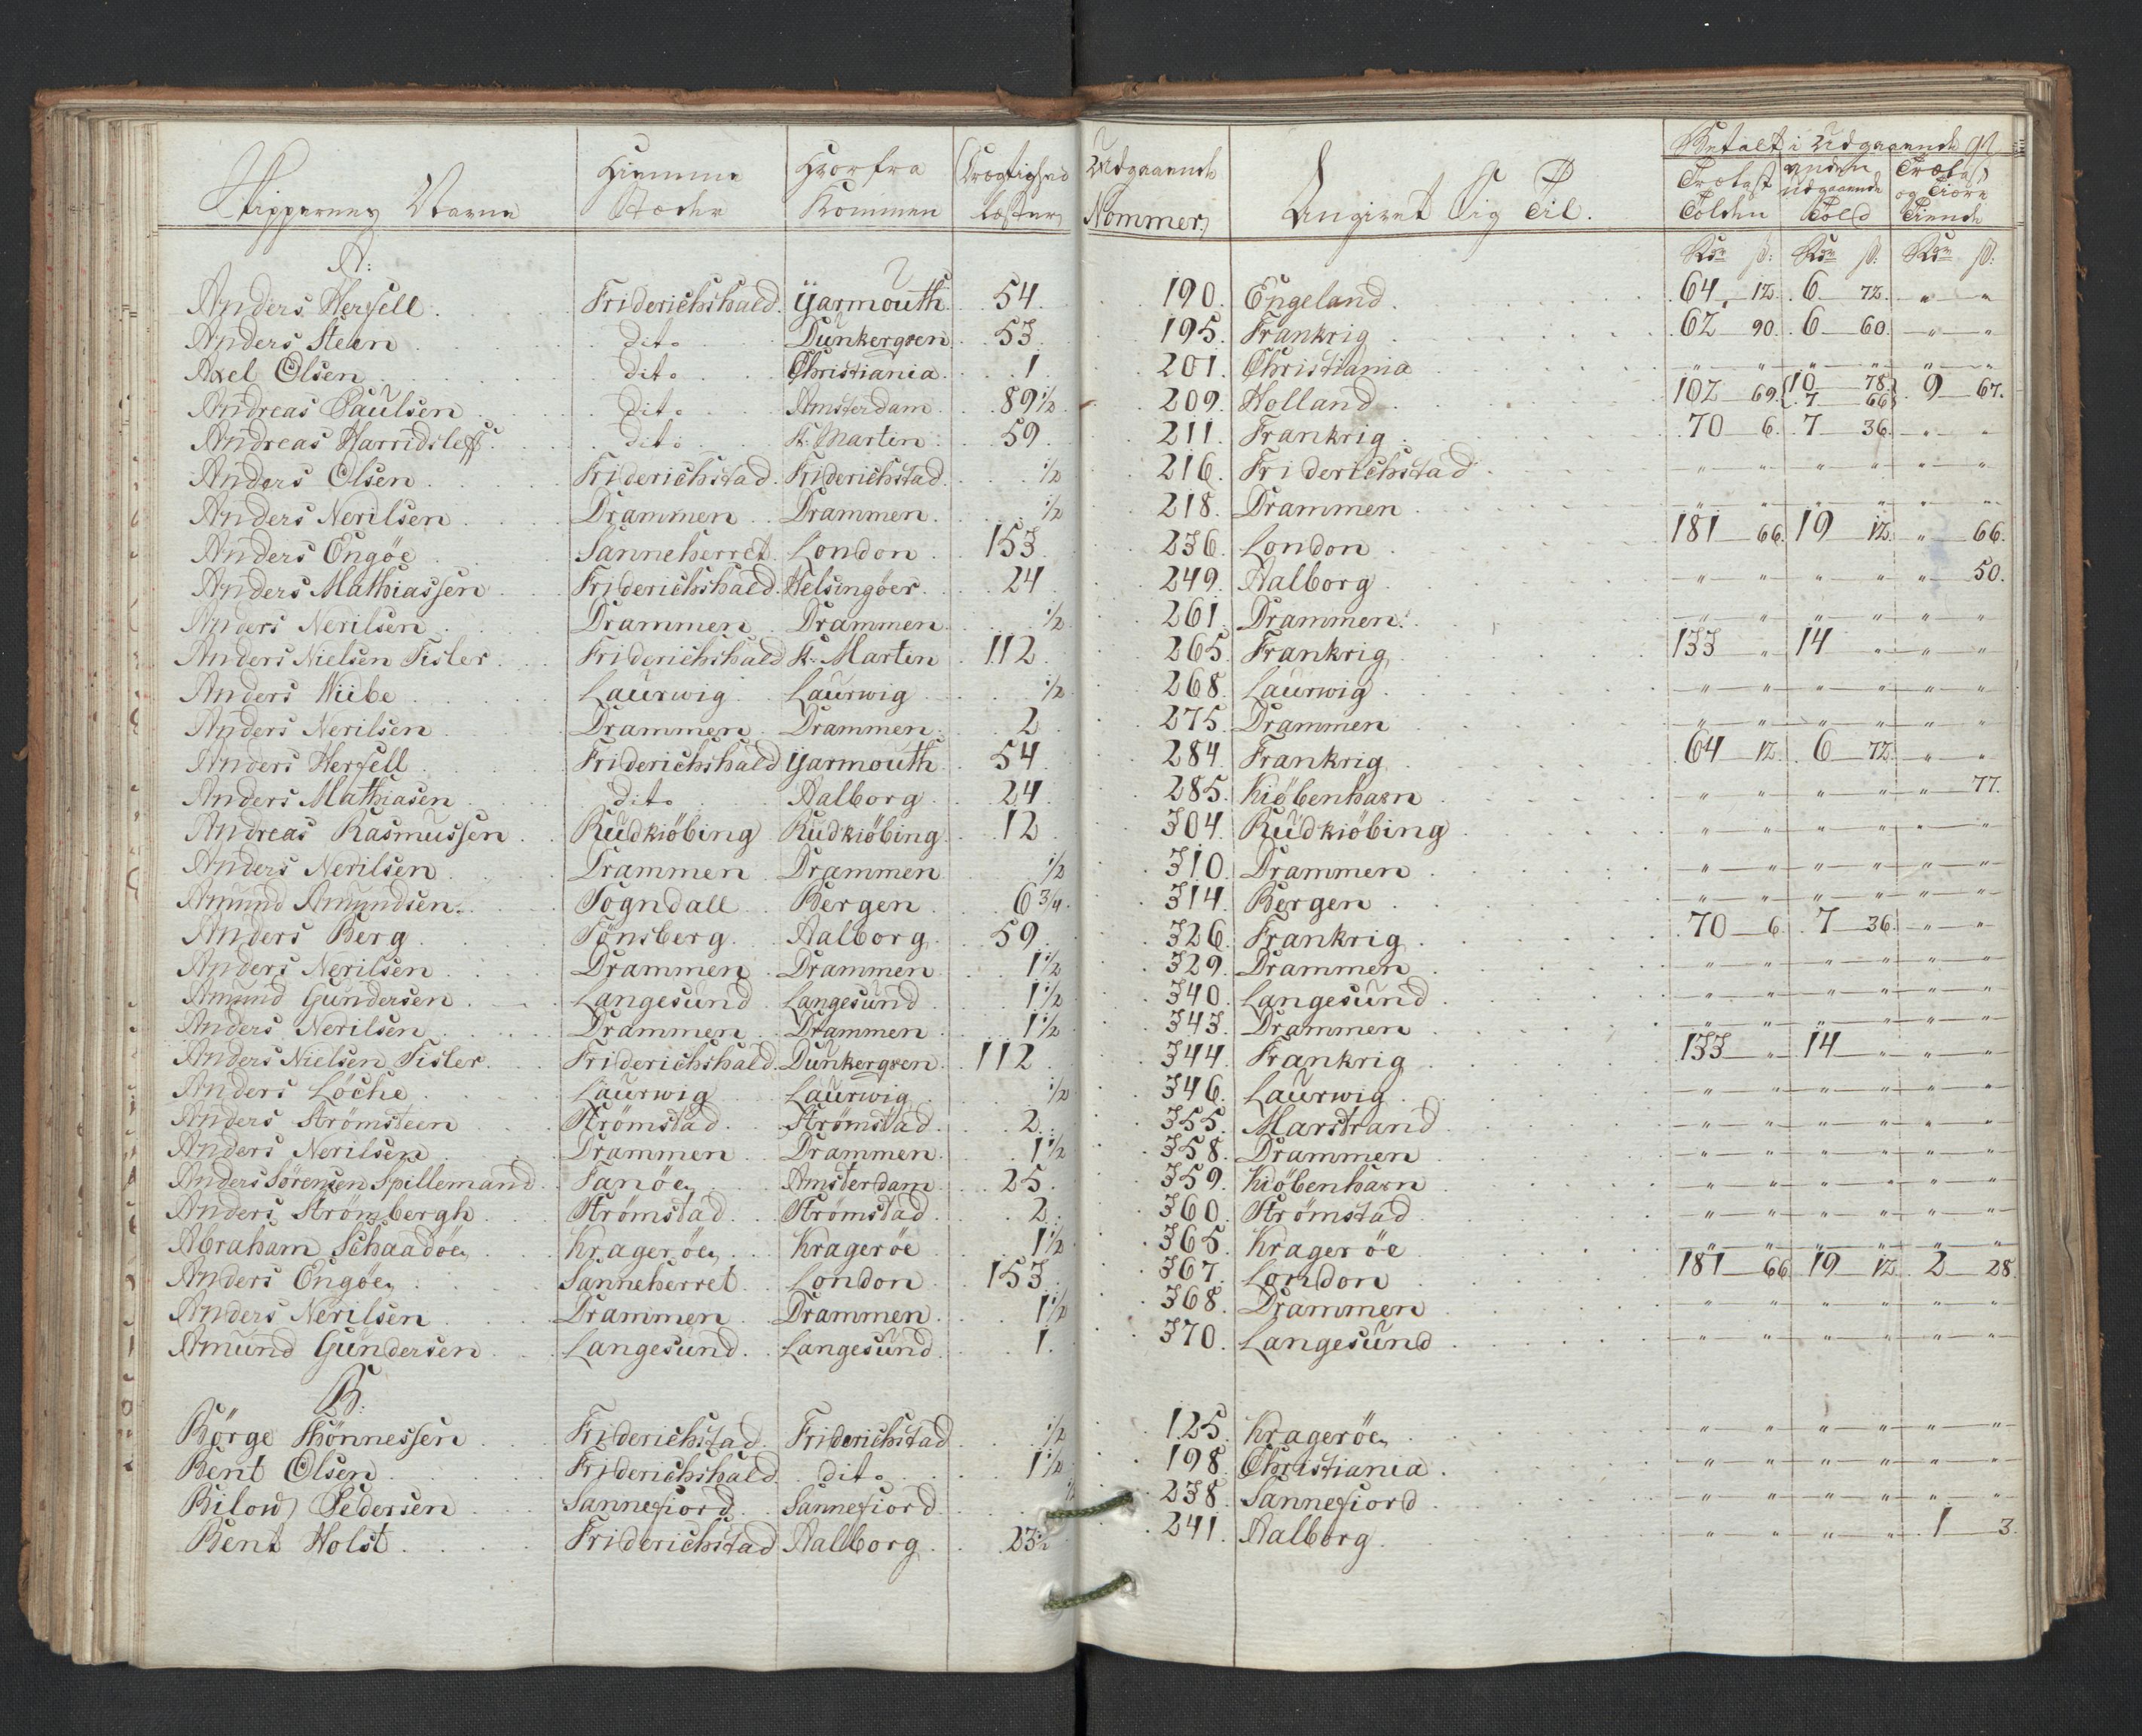 Betalt i Udgaaende
Skippernes Navne Hiemme Stæder Hvorfra Kommen Drægtighed Læster Udgaaende Nommer Angivet Sig Til. Trælast Tolden anden udgaaende Told Trælast og Tiære Tiende
A: Rdr ß: Rdr ß: Rdr ß:
Anders Hersell. Friderichshald. Yarmouth. 54. 190. Engeland. 64 12. 6 72. " "
Anders Steen dito Dünkerqven 53. 195. Frankrig 62 90. 6 60. " "
Axel Olsen dito Christiania. 1 201. Christiania " " " " " "
Andreas Paülsen dito Amsterdam. 89 1/2 209. Holland 102 69. { 10 78. 7 66 } 9 67.
Andreas Harridsleff. dito St. Martin. 59. 211. Frankrig 70 6. 7 36. " "
Anders Olsen Friderichstad. Friderichstad. 1/2 216. Friderichstad " " " " " "
Anders Nerilsen Drammen Drammen. 1/2 218. Drammen " " " " " "
Anders Engöe Sanneherret London 153. 236. London 181 66. 19 12. " 66.
Anders Mathiassen Friderichshald. Helsingöer. 24 249. Aalborg " " " " " 50.
Anders Nerilsen Drammen Drammen. 1/2 261. Drammen. " " " " " "
Anders Nielsen Tisler. Friderichshald St. Martin 112. 265. Frankrig 133 " 14 " " "
Anders Wiibe Laurwig Laurwig 1/2 268. Laurwig " " " " " "
Anders Nerilsen Drammen Drammen. 2 275. Drammen " " " " " "
Anders Hersell Friderichshald Yarmouth 54. 284. Frankrig 64 12. 6 72. " "
Anders Mathiasen dito Aalborg 24. 285. Kiöbenhavn " " " " " 77.
Andreas Rasmussen Rudkiöbing Rudkiöbing. 12 304. Rudkiöbing " " " " " "
Anders Nerilsen Drammen Drammen 1/2 310. Drammen " " " " " "
Amund Amundsen. Sogndall Bergen 6 3/4. 314. Bergen " " " " " "
Anders Berg Tönsberg. Aalborg. 59. 326. Frankrig 70 6. 7 36. " "
Anders Nerilsen Drammen Drammen 1 1/2 329. Drammen " " " " " "
Amund Gündersen Langesund Langesund 1 1/2 340. Langesund " " " " " "
Anders Nerilsen Drammen Drammen 1 1/2 343. Drammen " " " " " "
Anders Nielsen Tisler. Friderichshald. Dünkerqven. 112 344. Frankrig 133 " 14 " " "
Anders Löche Laurwig Laurwig 1/2 346. Laurwig " " " " " "
Anders Strömsteen Strömstad. Strömstad. 2. 355. Marstrand " " " " " "
Anders Nerilsen Drammen Drammen. 1 1/2 358. Drammen " " " " " "
Anders Sörensen Spillemand. Fanöe Amsterdam. 25. 359. Kiöbenhavn " " " " " "
Anders Strömbergh. Strömstad. Strömstad. 2. 360. Strömstad " " " " " "
Abraham Schaadöe Krageröe Krageröe 1 1/2 365. Krageröe " " " " " "
Anders Engöe Sanneherret London 153. 367. London 181 66 19 12. 2 28.
Anders Nerilsen Drammen Drammen. 1 1/2 368. Drammen " " " " " "
Amund Gündersen Langesund. Langesund. 1. 370. Langesund " " " " " "
B:
Börge Thönnessen Friderichstad. Friderichstad 1/2 125. Krageröe " " " " " "
Bent Olsen Friderichshald dito 1 1/2 198. Christiania. " " " " " "
Bilow Pedersen Sannefiord Sannefiord 1/2 238. Sannefiord " " " " " "
Bent Holst Friderichstad Aalborg 23 1/2 241. Aalborg. " " " " 1 3.